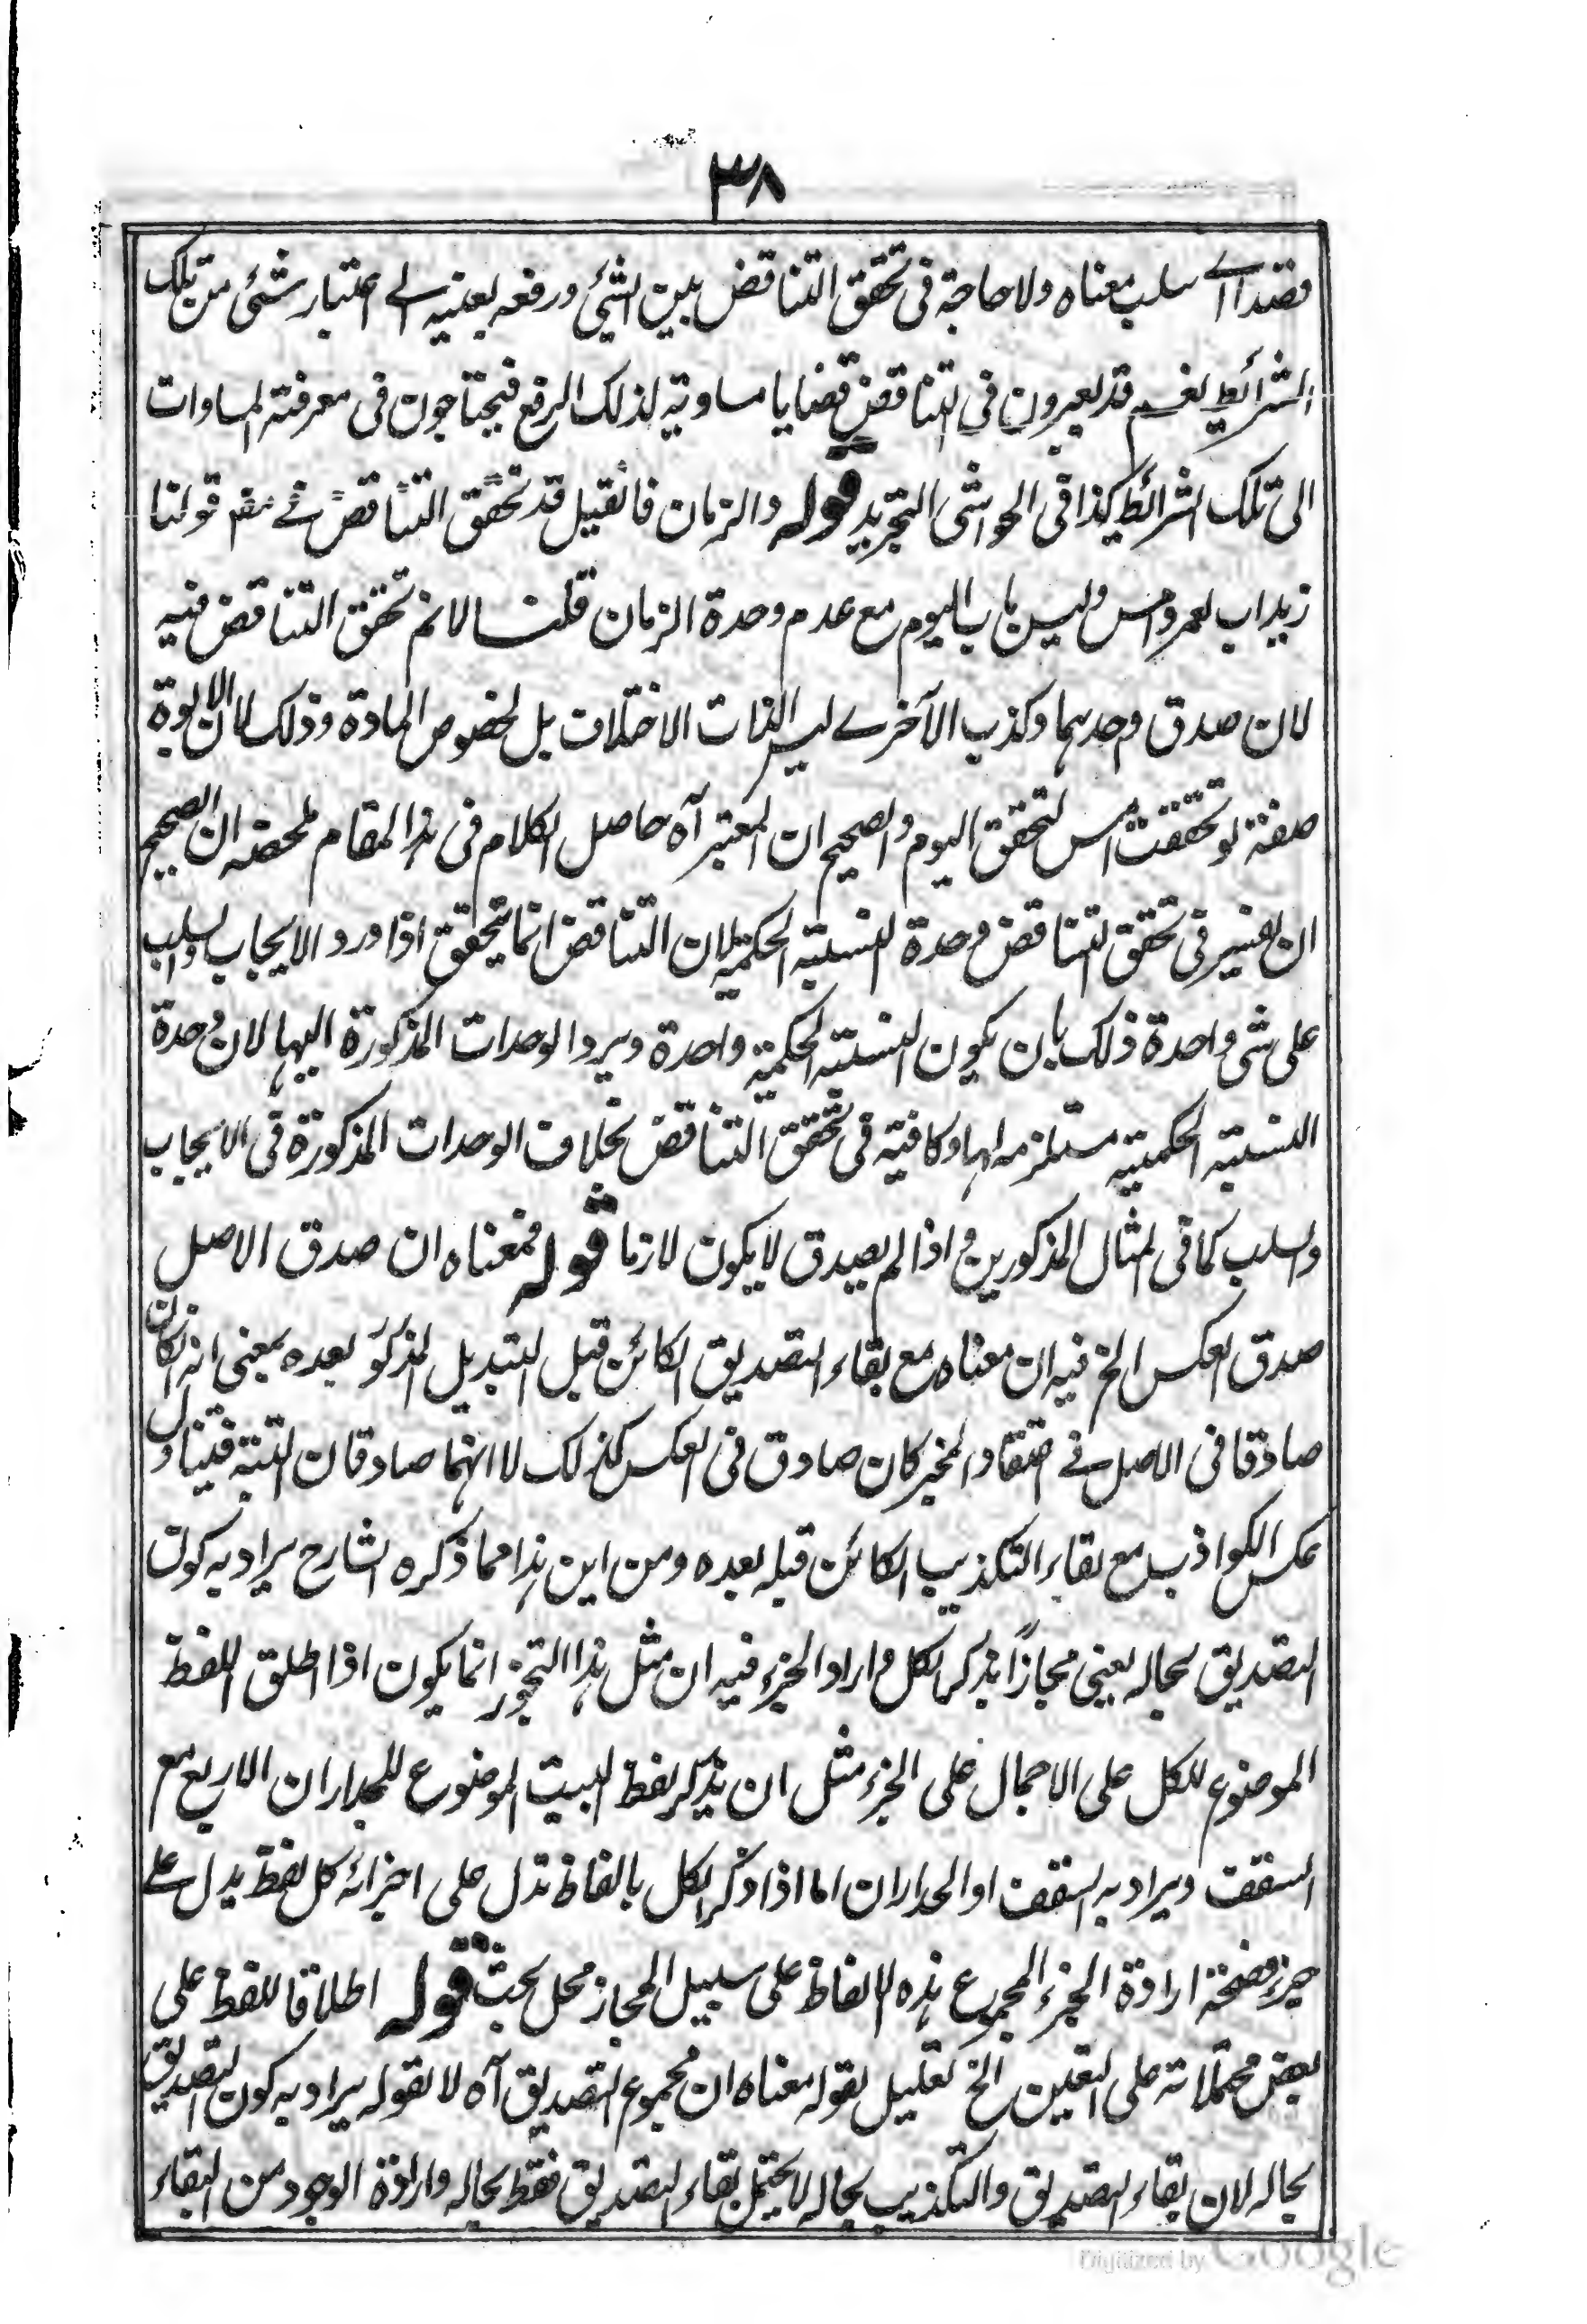 ٣٨
قصدا الى سلب معناه ولا حاجة فى تحقق التناقض بين الشئ ورفعه بعينه الى اعتبار شئ من تلك
الشرائط نعم قد يعبرون فى التناقض قضايا مساوية لذلك الرفع فيحتاجون فى معرفة المساوات
الى تلك الشرائط كذا فى الحواشى التجريد قوله والزمان فانقيل قد تحقق التناقض فى قولنا
زيد اب لعمرو امس وليس باب اليوم مع عدم وحدة الزمان قلنا لانم تحقق التناقض فيه
لان صدق احدهما وكذب الآخرى ليس لذات الاختلاف بل لخصوص المادة وذلك لان الابوة
صفة لو تحققت امس لتحقق اليوم والصحيح ان المعتبر آه حاصل الكلام فى هذا المقام ملخصه ان الصحيح
ان يفسر فى تحقق التناقض وحدة النسبة الحكمية لان التناقض انما يتحقق اذا ورد الايجاب والسلب
على شئ واحدة ذلك بان يكون النسبة الحكمية واحدة ويرد الوحدات المذكورة اليها لان وحدة
النسبة الحكمية مستلزمة لها وكافية فى تحقق التناقض بخلاف الوحدات المذكورة فى الايجاب
والسلب كما فى المثال المذكورين واذا لم يصدق لا يكون لازما قوله فمعناه ان صدق الاصل
صدق العكس الخ فيه ان معناه مع بقاء التصديق الكائن قبل التبديل المذكور بعده بمعنى انه ان كان
صادقا فى الاصل فى اعتقاد المخبر كان صادق فى العكس كذلك لا انهما صادقان البتة فيتناول
عكس الكواذب مع بقاء التكذيب الكائن قبله بعده ومن اين هذا مما ذكره الشارح يراد به كون
التصديق بحاله يعنى مجازا بذكر الكل واراد الجزء فيه ان مثل هذا التجوز انما يكون اذا اطلق اللفظ
الموضوع للكل على الاجمال على الجزء مثل ان يذكر لفظ البيت الموضوع للجداران الاربع مع
السقف ويراد به السقف او الجداران اما اذا ذكر الكل بالفاظ تدل على اجزائه كل لفظ يدل على
جزء فصحة ارادة الجزء المجموع هذه الالفاظ على سبيل المجاز محل بحث قوله اطلاقا للفظ على
بعض محتملاته على التعيين الخ تعليل لقوله معناه ان مجموع التصديق آه لا لقوله يراد به كون التصديق
بحاله لان بقاء التصديق والتكذيب بحاله لا يحتمل بقاء التصديق فقط بحاله وارادة الوجود من البقاء
Digitized by Google